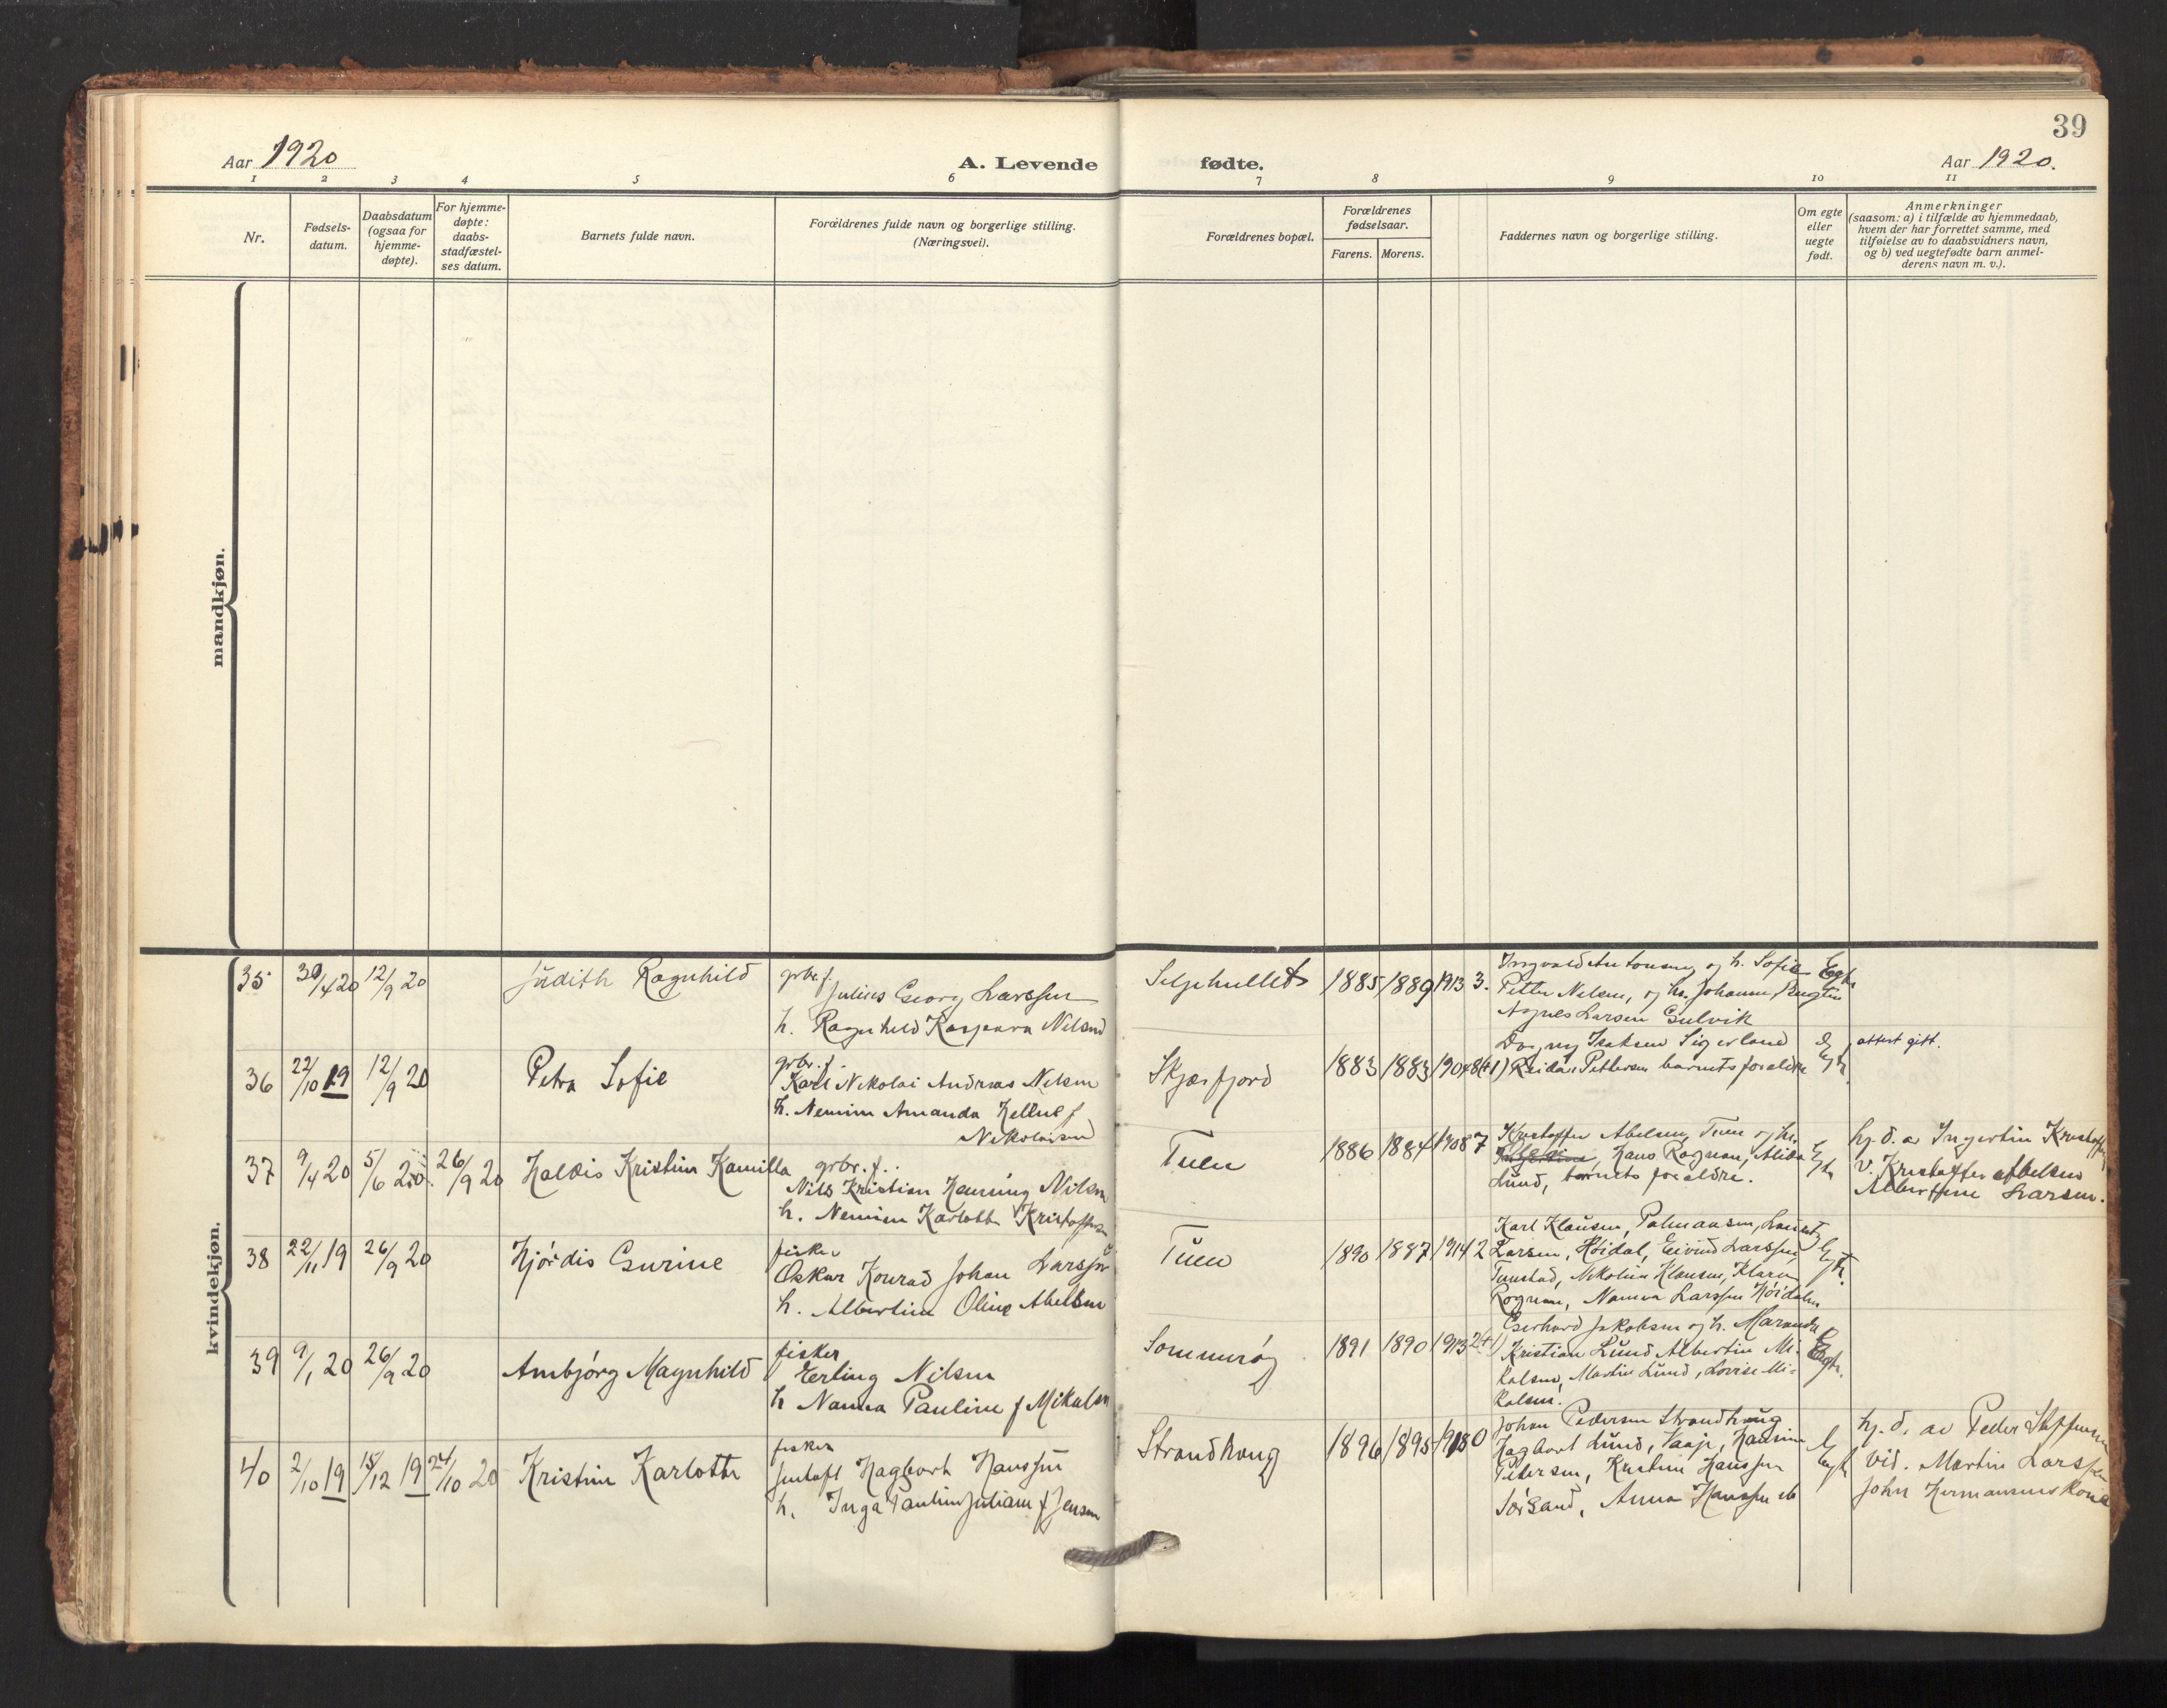 39
Aar 1920
A. Levende fødte.
Aar 1920.
1 2 3 4 5 6 7 8 9 10 11
Nr.
Fødsels-
datum.
Daabsdatum
(ogsaa for
hjemme-
døpte).
For hjemme-
døpte:
daabs-
stadfæstel-
ses datum.
Barnets fulde navn.
Forældrenes fulde navn og borgerlige stilling.
(Næringsvei).
Forældrenes bopæl.
Forældrenes
fødselsaar.
Farens. Morens.
Faddernes navn og borgerlige stilling.
Om egte
eller
uegte
født.
Anmerkninger
(saasom: a) i tilfælde av hjemmedaab,
hvem der har forrettet samme, med
tilføielse av to daabsvidners navn,
og b) ved uegtefødte barn anmel-
derens navn m. v.).
mandkjøn.
kvindekjøn.
35 30/4 20 12/9 20 Judith Ragnhild
grbr. f.
Julius Georg Larssen
h. Ragnhild Kaspara Nilsen
1885 1889 1913 3.
h. Sofie
Petter Nelsen, og h. Johanna
Agnes Larsen Gulvik
Egte
36 22/10 19 12/9 20 Petra Sofie
grbr. f.
Karl Nikolai Andreas Nilsen
h. Amanda f
Nikolaisen
Skjæsfjord
1883 1883 1904 8(+1)
Dagny Isaksen
Reidar Pettersen barnets forældre
Egte
attest gitt.
37 9/4 20 5/6 20. 26/9 20 Haldis Kristine Kamilla
grbr. f.
Nils Kristian Henning Nilsen
h. Karlotte Kristoffersen
Tuen
1886 1884 1908 7
Kristoffer Abelsen, Tuen og h.
Hans Rognan, Alida
Lund, barnets forældre.
Egte
hj. d. av Ingertine Kristoffersen
v. Kristoffer Abelsen
Albertine Larsen.
38 22/11 19 26/9 20 Hjørdis Gurine
fisker
Oskar Konrad Johan Larssen
h. Albertine Oline Abelsen
Tuen
1890 1887 1914 2
Karl Klausen,
Larsen, Høidal, Eivind Larssen
Tunstad, Nikolina Klausen, Klara
Rognan, Larssen Høidalen
Egte.
39 9/1 20 26/9 20 Arnbjørg Magnhild
fisker
Erling Nilsen
h Nanna Pauline f Mikalsen
Sommerøy
1891 1890 1913 2+1)
Gerhard Jakobsen og h. Maranda
Kristian Lund Albertine Mi-
kalsen, Martin Lund, Lovise Mi-
kalsen.
Egte.
40 2/10 19 15/12 19 24/10 20 Kristine Karlotte
fisker
Hagbart Hanssen
h. Inga Pauline Juliane f Jensen
Strandhaug
1896 1895 1918 0
Johan Pedersen Strandhaug
Hagbart Lund, Vaaje,
Petersen, Kristine Hanssen
Sørsand, Anna Hanssen
Egte
hj. d. av Peder Steffensen
vid. Martin Larssen
John